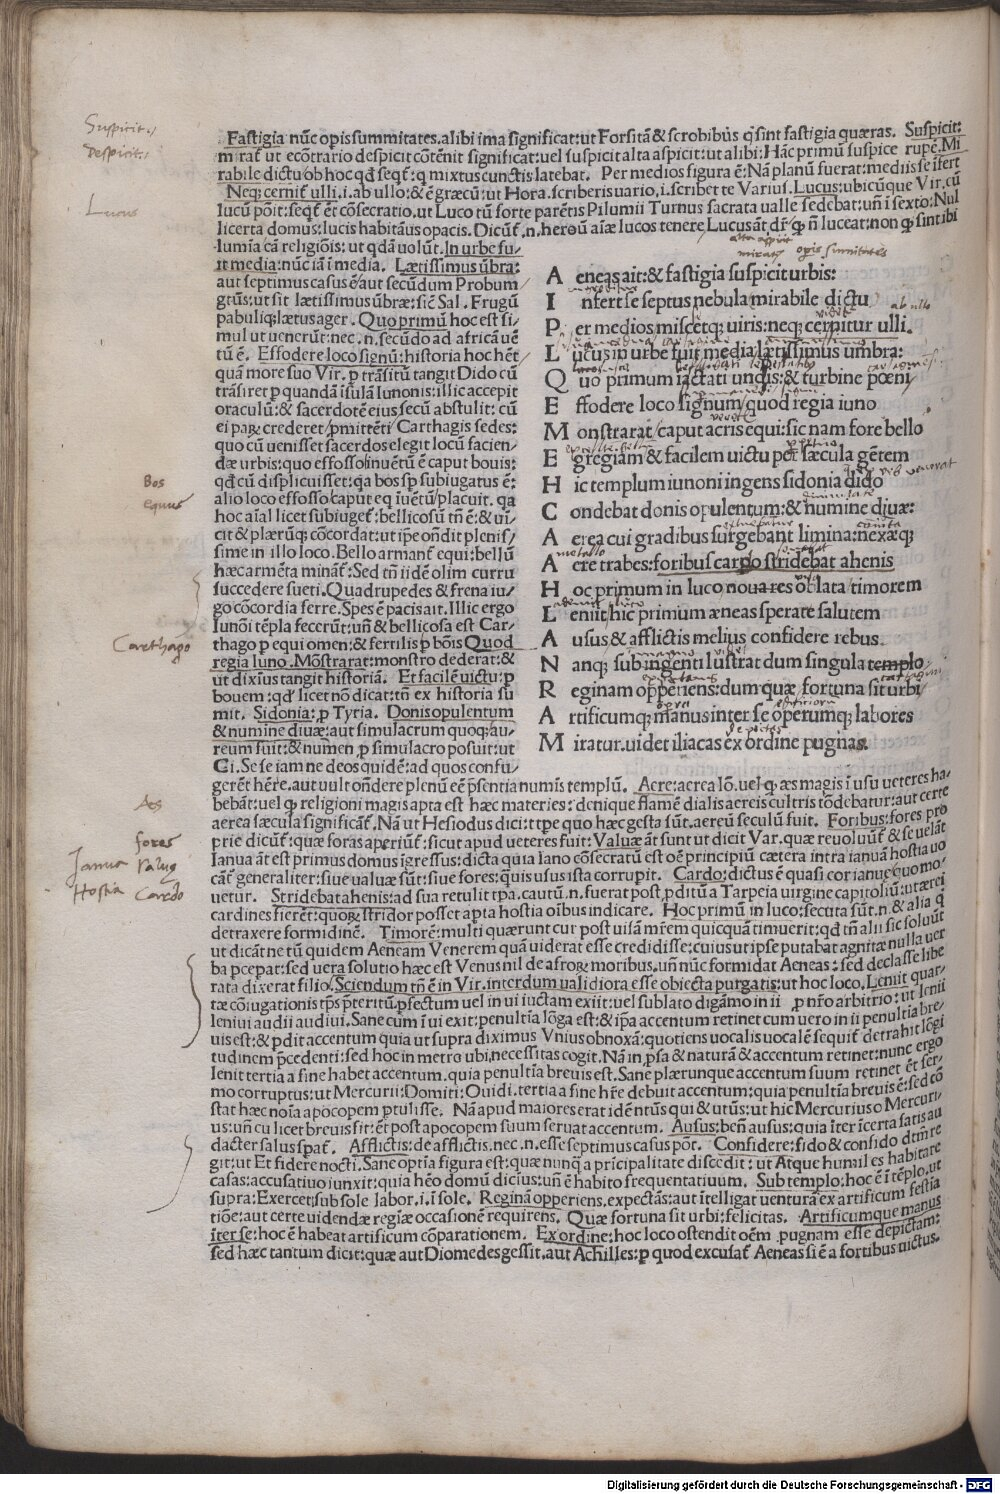 Suspicit.
Despicit.
Lucus
Fastigia nũc opis summitates. alibi ima significat: ut Forsitã & scrobibus q̃ sint fastigia quæras. Suspicit:
mirat̃ ut ecõtrario despicit cõtẽnit significat: uel suspicit alta aspicit: ut alibi: Hãc primũ suspice rupẽ. Mi
rabile dictu ob hoc qđ seqt̃: q mixtus cunctis latebat. Per medios figura ẽ: Nã planũ fuerat: mediis se ĩfert
Neq; cernit̃ ulli. i. ab ullo: & ẽ græcũ: ut Hora. scriberis uario, i. scribet te Varius. Lucus: ubicũque Vir. cũ
lucũ põit: seqt̃ ẽt cõsecratio. ut Luco tũ forte parẽtis Pilumii Turnus sacrata ualle sedebat: uñ i sexto: Nul
li certa domus: lucis habitãus opacis. Dicũt̃ .n. heroũ aĩæ lucos tenere, Lucus ãt dr̃ ꝙ ñ luceat: non ꝙ sint ibi
lumĩa cã religiõis: ut qđã uolũt. In urbe fu/
it media: nũc iã ĩ media. Lætissimus ũbra:
aut septimus casus ẽ/aut secũdum Probum
gtũs: ut sit lætissimus ũbræ: siẽ Sal. Frugũ
pabuliq; lætus ager. Quo primũ hoc est si/
mul ut uenerũt: nec .n. secũdo ad africã uẽ
tũ ẽ. Effodere loco signũ: historia hoc hẽt
quã more suo Vir. p trãsitũ tangit Dido cũ
trãsiret p quandã ĩsulã Iunonis: illic accepit
oraculũ: & sacerdotẽ eius secũ abstulit: cũ
ei pag; crederet / pmittẽti Carthagis sedes:
quo cũ uenisset sacerdos elegit locũ facien/
dæ urbis: quo effosso ĩnuẽtũ ẽ caput bouis:
qđ cũ displicuisset: qa bos sp subiugatus ẽ:
alio loco effosso caput eq iuẽtũ/placuit. qa
hoc aĩal licet subiuget̃: bellicosũ tñ ẽ: & ui/
cit & plærũq; cõcordat: ut ip̃e oñdit plenis/
sime in illo loco. Bello armant̃ equi: bellũ
hæc armẽta minãt̃: Sed tñ iidẽ olim curru
succedere sueti. Quadrupedes & frena iu/
go cõcordia ferre. Spes ẽ pacis ait. Illic ergo
Iunõi tẽpla fecerũt: uñ & bellicosa est Car/
thago p equi omen: & fertilis p bõis Quod
regia Iuno. Mõstrarat: monstro dederat: &
ut diximus tangit historiã. Et facilẽ uictu: p
bouem: qđ licet nõ dicat: tñ ex historia su
mit. Sidonia: p Tyria. Donis opulentum
& numine diuæ: aut simulacrum quoq; au/
reum fuit: & numen p simulacro posuit: ut
Ci. Se se iam ne deos quidẽ: ad quos confu/
A eneas ait: & fastigia suspicit urbis:
I nfert se septus nebula/mirabile dictu
P er medios miscetq; uiris: neq; cernitur ulli.
L ucus in urbe fuit media/lætissimus umbra:
Q uo primum iactati undis: & turbine pœni/
E ffodere loco signum/quod regia iuno
M onstrarat/caput acris equi: sic nam fore bello
E gregiam & facilem uictu per sæcula gẽtem
H ic templum iunoni ingens sidonia dido
C ondebat donis opulentum: & numine diuæ:
A erea cui gradibus surgebant limina: nexæq;
A ere trabes: foribus cardo stridebat ahenis
H oc primum in luco noua res oblata timorem
L eniit/hic primum æneas sperate salutem
A usus & afflictis melius confidere rebus.
N anq; sub ingenti lustrat dum singula templo
R eginam opperiens: dum quæ fortuna sit urbi
A rtificumq; manus inter se operumq; labores
M iratur. uidet iliacas ex ordine pugnas.
Bos
equus
Carthago
gerẽt hẽre. aut uult oñdere plenũ eẽ p̃sentia numis templũ. Aere: aerea lõ. uel ꝙ æs magis ĩ usu ueteres ha-
bebãt: uel ꝙ religioni magis apta est hæc materies: denique flamẽ dialis aereis cultris tõdebatur: aut certe
aerea sæcula significãt̃. Nã ut Hesiodus dicit tpe quo hæc gesta sũt. aereũ seculũ fuit. Foribus: fores pro
prie dicũt̃: quæ foras aperiũt̃: sicut apud ueteres fuit: Valuæ ãt sunt ut dicit Var. quæ reuoluũt̃ & se uelãt
Ianua ãt est primus domus ĩgressus: dicta quia Iano cõsecratũ est oẽ principiũ cætera intra ianuã hostia uo
cãt̃ generaliter: siue ualuæ sũt: siue fores: quis usus ista corrupit. Cardo: dictus ẽ quasi cor ianuæ quo mo/
uetur. Stridebat ahenis: ad sua retulit tpa. cautũ .n. fuerat post pditũ a Tarpeia uirgine capitoliũ: ut ærei
cardines fierẽt: quoꝝ stridor posset apta hostia oĩbus indicare. Hoc primũ in luco: secuta sũt .n. & alia q̃
detraxere formidinẽ. Timorẽ: multi quærunt cur post uisã mr̃em quicquã timuerit: qđ tñ alii sic soluũt
ut dicãt ne tũ quidem Aeneam Venerem quã uiderat esse credidisse: cuius ut ipse putabat agnitæ nulla uer
ba pcepat: sed uera solutio hæc est Venus nil de afroꝝ moribus. uñ nũc formidat Aeneas: sed de classe libe
rata dixerat filio. Sciendum tñ ẽ in Vir. interdum ualidiora esse obiecta purgatis: ut hoc loco. Leniit quar-
tæ cõiugationis tp̃s p̃teritũ. pfectum uel in ui iuctam exiit: uel sublato digãmo in ii p nr̃o arbitrio: ut lenii
leniui audii audiui. Sane cum ĩ ui exit: penultĩa lõga est: & ip̃a accentum retinet cum uero in ii penultĩa bre/
uis est: & pdit accentum quia ut supra diximus Vnius obnoxã: quotiens uocalis uocalẽ sequit̃ detrahit lõgi
tudinem p̃cedenti: sed hoc in metro ubi, necessitas cogit. Nã in p̃sa & naturã & accentum retinet: nunc ergo
lenit tertia a fine habet accentum. quia penultĩa breuis est. Sane plærunque accentum suum retinet ẽt ser-
mo corruptus: ut Mercurii: Domiti: Ouidi. tertia a fine hr̃e debuit accentum: quia penultĩa breuis ẽ: sed cõ
stat hæc noĩa apocopem ptulisse. Nã apud maiores erat idẽ ntũs qui & utũs: ut hic Mercurius o Mercuri/
us: uñ cu licet breuis sit: ẽt post apocopem suum seruat accentum. Ausus: beñ ausus: quia ĩter ĩcerta satis au
dacter salus spat̃. Afflictis: de afflictis. nec .n. esse septimus casus põt. Confidere: fido & confido dtm̃ re
git: ut Et fidere nocti. Sane optĩa figura est: quæ nunq̃ a prĩcipalitate discedit: ut Atque humiles habitare
casas: accusatiuo iunxit: quia hẽo domũ dicius: uñ ẽ habito frequentatiuum. Sub templo: hoc ẽ ĩ tẽplo. ut
supra: Exercet sub sole labor. i. ĩ sole. Reginã opperiens. expectãs: aut ĩtelligat uenturã ex artificum festĩa
tiõe: aut certe uidendæ regiæ occasionẽ requirens. Quæ fortuna sit urbi: felicitas. Artificumque manus
ĩter se: hoc ẽ habeat artificum cõparationem. Ex ordine: hoc loco ostendit oẽm pugnam esse depictam:
sed hæc tantum dicit: quæ aut Diomedes gessit. aut Achilles: p quod excusat̃ Aeneas si ẽ a fortibus uictus.
Aes
fores
Ianua
Hostia
Cardo
Digitalisierung gefördert durch die Deutsche Forschungsgemeinschaft - DFG